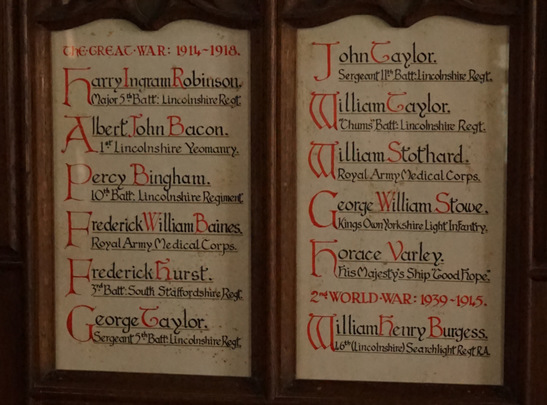 THE·GREAT·WAR: 1914-1918.
Harry Ingram Robinson.
Major 5th Batt: Lincolnshire Regt.
Albert John Bacon.
1st Lincolnshire Yeomanry.
Percy Bingham.
10th Batt: Lincolnshire Regiment
Frederick William Baines.
Royal Army Medical Corps.
Frederick Hurst.
3rd Batt: South Staffordshire Regt.
George Taylor.
Sergeant 5th Batt: Lincolnshire Regt.
John Taylor.
Sergeant 11th Batt: Lincolnshire Regt.
William Taylor.
"Chums" Batt: Lincolnshire Regt.
William Stothard.
Royal Army Medical Corps.
George William Stowe.
Kings Own Yorkshire Light Infantry.
Horace Varley.
His Majesty's Ship "Good Hope."
2nd WORLD·WAR: 1939-1945.
William Henry Burgess.
46th (Lincolnshire) Searchlight Regt R.A.